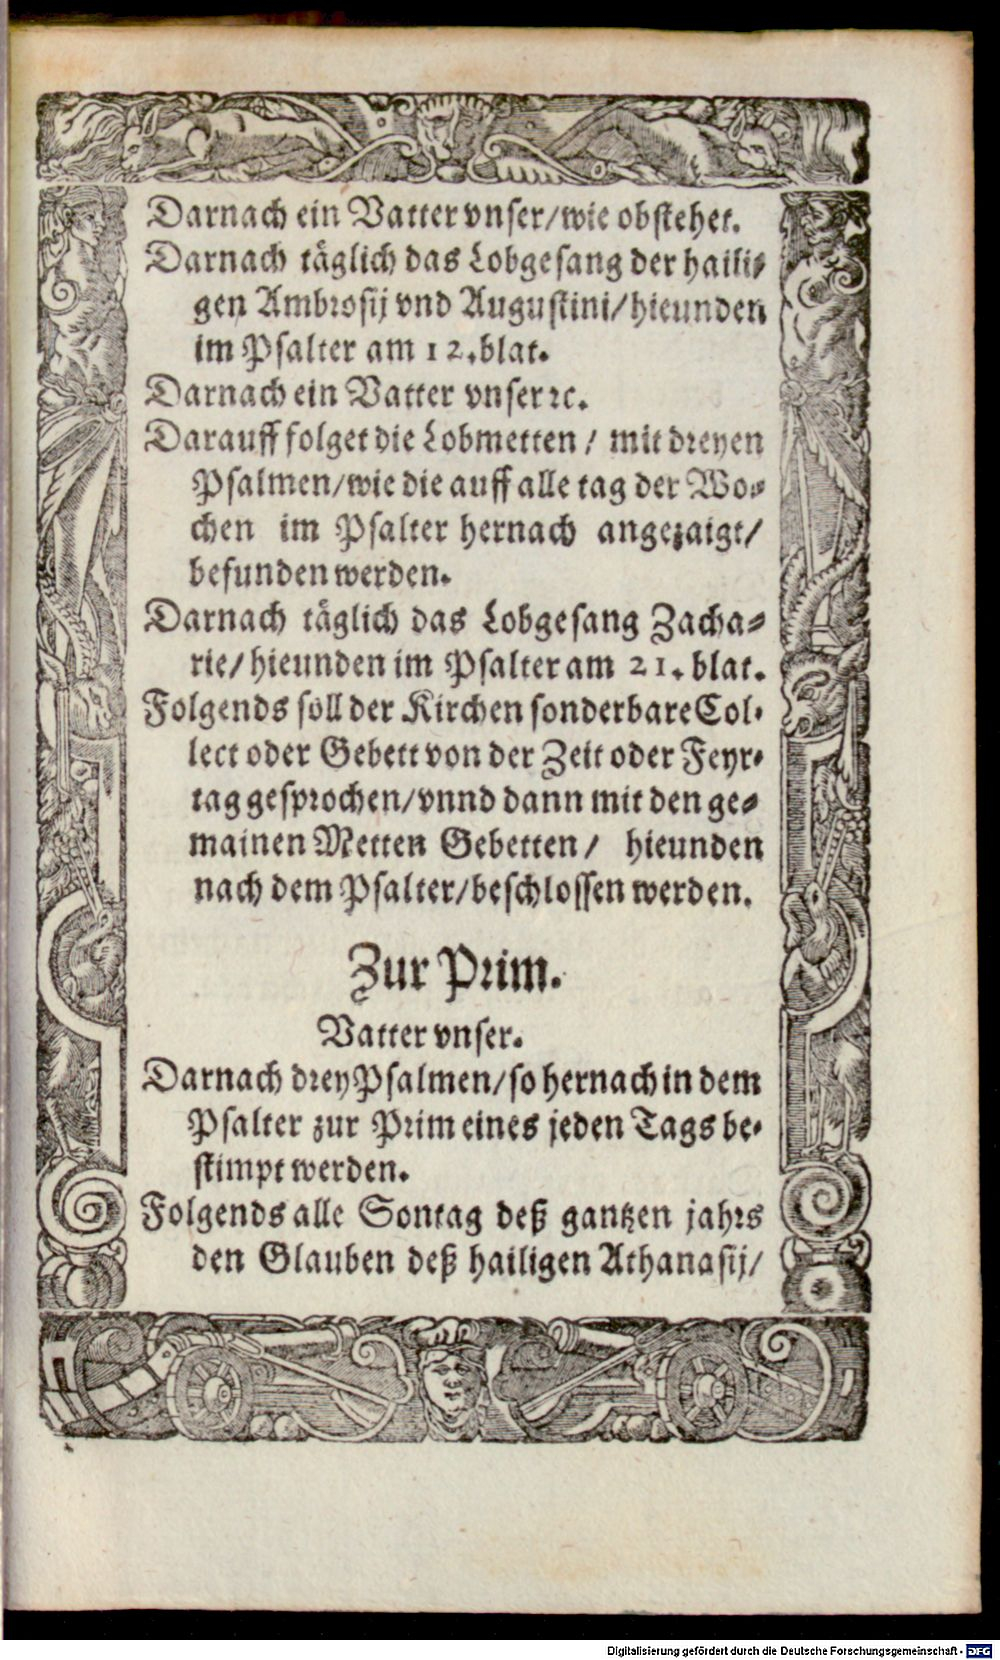 Darnach ein Vatter vnser/wie obstehet.
Darnach täglich das Lobgesang der haili-
gen Ambrosij vnd Augustini/hieunden
im Psalter am 12.blat.
Darnach ein Vatter vnser ꝛc.
Darauff folget die Lobmetten / mit dreyen
Psalmen/wie die auff alle tag der Wo-
chen im Psalter hernach angezaigt/
befunden werden.
Darnach täglich das Lobgesang Zacha-
rie/hieunden im Psalter am 21. blat.
Folgends soll der Kirchen sonderbare Col-
lect oder Gebett von der Zeit oder Feyr-
tag gesprochen/vnnd dann mit den ge-
mainen Metten Gebetten / hieunden
nach dem Psalter/beschlossen werden.
Zur Prim.
Vatter vnser.
Darnach drey Psalmen/so hernach in dem
Psalter zur Prim eines jeden Tags be-
stimpt werden.
Folgends alle Sontag deß gantzen jahrs
den Glauben deß hailigen Athanasij/
Digitalisierung gefördert durch die Deutsche Forschungsgemeinschaft - DFG